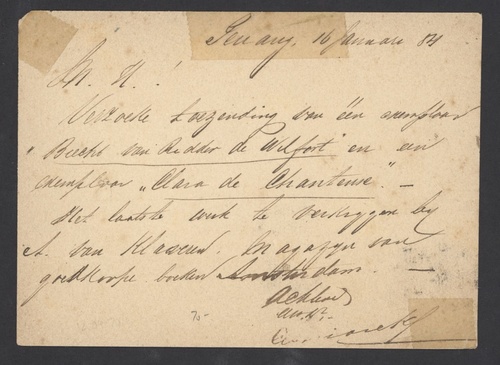 Penang, 16 Januari 84
M. H.!
Verzoeke toezending van één exemplaar
"Biecht van Ridder de Wilfort" en een
exemplaar "Clara de Chanteuse". —
Het laatste werk te verkrijgen bij
A. van Klaveren. Magazijn van
goedkoope boeken Amsterdam. —
Achtend
7.-